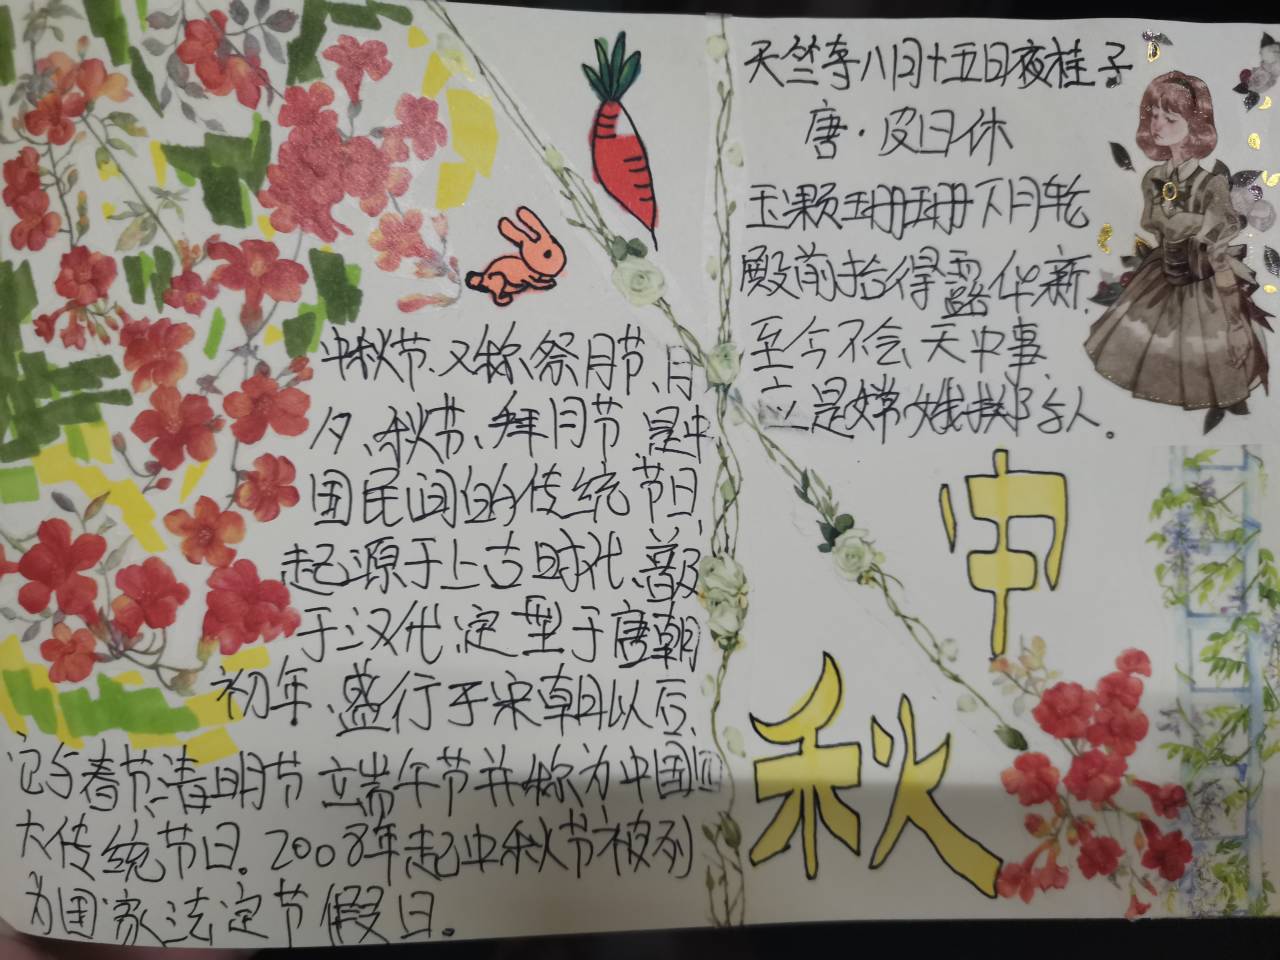 中秋节、又称祭月节、月
夕、秋节、拜月节 是中
国民间的传统节日、
起源于上古时代、普及
于汉代、定型于唐朝
初年、盛行于宋朝以后、
它与春节、清明节 端午节并称为中国四
大传统节日。2008年起中秋节被列
为国家法定节假日。
天竺寺八月十五日夜桂子
唐·皮日休
玉颗珊珊下月轮
殿前拾得露华新
至今不会天中事
是嫦娥掷与人。
中
秋